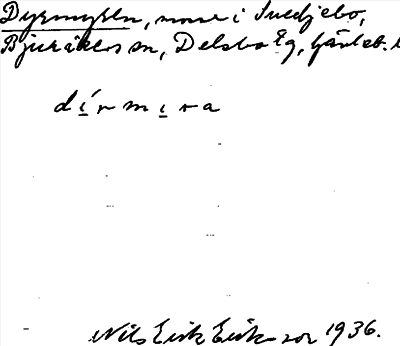 Dyrmyren, mosse i Svedjebo,
Bjuråkers sn, Delsbo tg, Gävleb. l
dírmıra
Nils Eirik Eiriksson 1936.